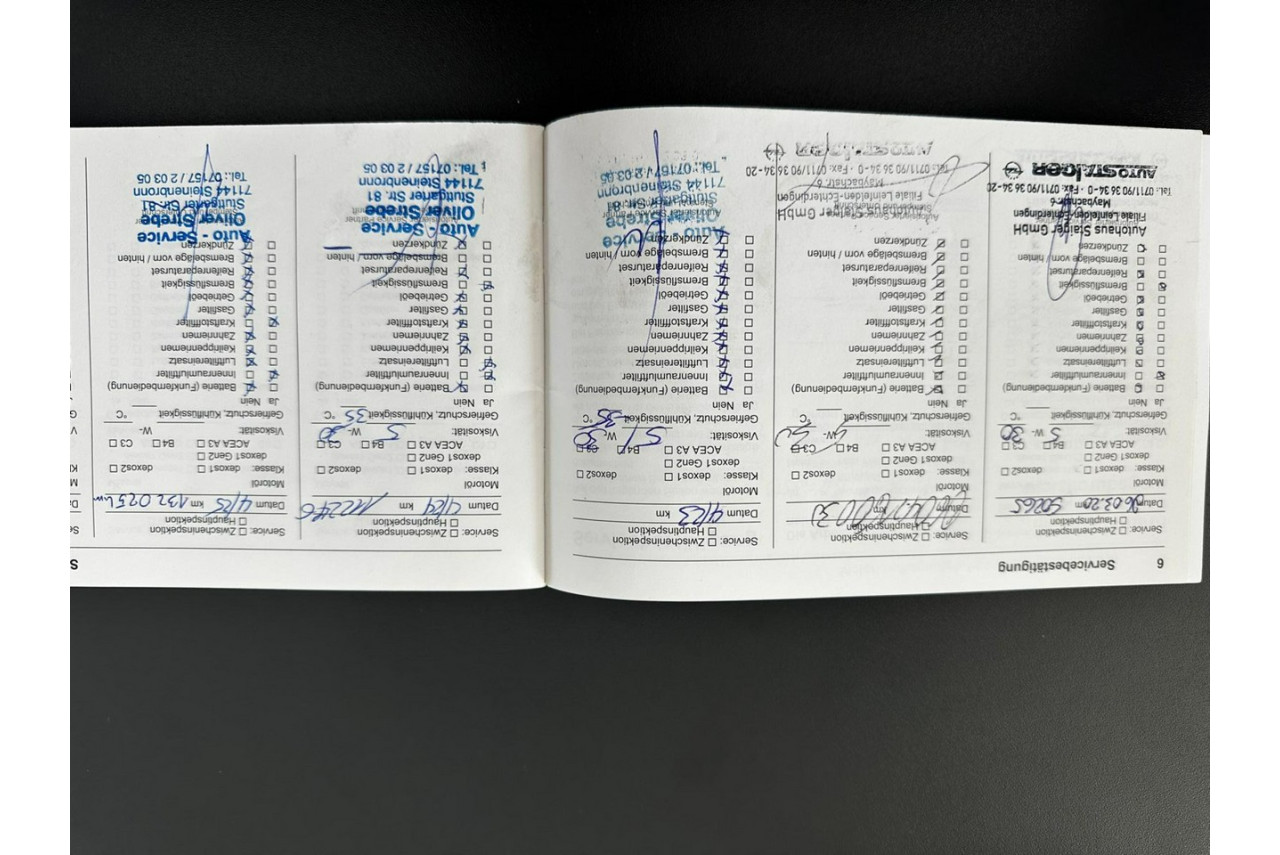 6 Servicebestätigung
Service: Zwischeninspektion
Hauptinspektion
Datum 06.03.20 km 50265
Motoröl
Klasse: dexos1 dexos2
dexos1 Gen2
ACEA A3 B4 C3
Viskosität: 5 W- 30
Gefrierschutz, Kühlflüssigkeit °C
Ja Nein
Batterie (Funkfernbedienung)
Innenraumluftfilter
Luftfiltereinsatz
Keilrippenriemen
Zahnriemen
Kraftstofffilter
Gasfilter
Getriebeöl
Bremsflüssigkeit
Reifenreparaturset
Bremsbeläge vorn / hinten
Zündkerzen
Autohaus Staiger GmbH
Filiale Leinfelden-Echterdingen
Maybachstr. 6
Tel.: 0711/90 36 34- 0 · Fax: 0711/90 36 34-20
AUTOSTAIGER
Service: Zwischeninspektion
Hauptinspektion
Datum km
Motoröl
Klasse: dexos1 dexos2
dexos1 Gen2
ACEA A3 B4 C3
Viskosität: W-
Gefrierschutz, Kühlflüssigkeit °C
Ja Nein
Batterie (Funkfernbedienung)
Innenraumluftfilter
Luftfiltereinsatz
Keilrippenriemen
Zahnriemen
Kraftstofffilter
Gasfilter
Getriebeöl
Bremsflüssigkeit
Reifenreparaturset
Bremsbeläge vorn / hinten
Zündkerzen
Autohaus Staiger GmbH
Filiale Leinfelden-Echterdingen
Maybachstr. 6
Tel.: 0711/90 36 34- 0 · Fax: 0711/90 36 34-20
AUTOSTAIGER
Service: Zwischeninspektion
Hauptinspektion
Datum 4/23 km
Motoröl
Klasse: dexos1 dexos2
dexos1 Gen2
ACEA A3 B4 C3
Viskosität: 5 W- 30
Gefrierschutz, Kühlflüssigkeit -35 °C
Ja Nein
Batterie (Funkfernbedienung)
Innenraumluftfilter
Luftfiltereinsatz
Keilrippenriemen
Zahnriemen
Kraftstofffilter
Gasfilter
Getriebeöl
Bremsflüssigkeit
Reifenreparaturset
Bremsbeläge vorn / hinten
Zündkerzen
Auto - Service
Stuttgarter Str. 81
71144 Steinenbronn
Tel.: 07157 / 2 03 05
S
Service: Zwischeninspektion
Hauptinspektion
Datum 4/24 km 112246
Motoröl
Klasse: dexos1 dexos2
dexos1 Gen2
ACEA A3 B4 C3
Viskosität: 5 W- 30
Gefrierschutz, Kühlflüssigkeit 35 °C
Ja Nein
Batterie (Funkfernbedienung)
Innenraumluftfilter
Luftfiltereinsatz
Keilrippenriemen
Zahnriemen
Kraftstofffilter
Gasfilter
Getriebeöl
Bremsflüssigkeit
Reifenreparaturset
Bremsbeläge vorn / hinten
Zündkerzen
Auto - Service
Oliver Strebe
Stuttgarter Str. 81
71144 Steinenbronn
Tel.: 07157 / 2 03 05
Service: Zwischeninspektion
Hauptinspektion
Datum 4/25 km 132025 km
Motoröl
Klasse: dexos1 dexos2
dexos1 Gen2
ACEA A3 B4 C3
Viskosität: W-
Gefrierschutz, Kühlflüssigkeit °C
Ja Nein
Batterie (Funkfernbedienung)
Innenraumluftfilter
Luftfiltereinsatz
Keilrippenriemen
Zahnriemen
Kraftstofffilter
Gasfilter
Getriebeöl
Bremsflüssigkeit
Reifenreparaturset
Bremsbeläge vorn / hinten
Zündkerzen
Auto - Service
Oliver Strebe
Stuttgarter Str. 81
71144 Steinenbronn
Tel.: 07157 / 2 03 05